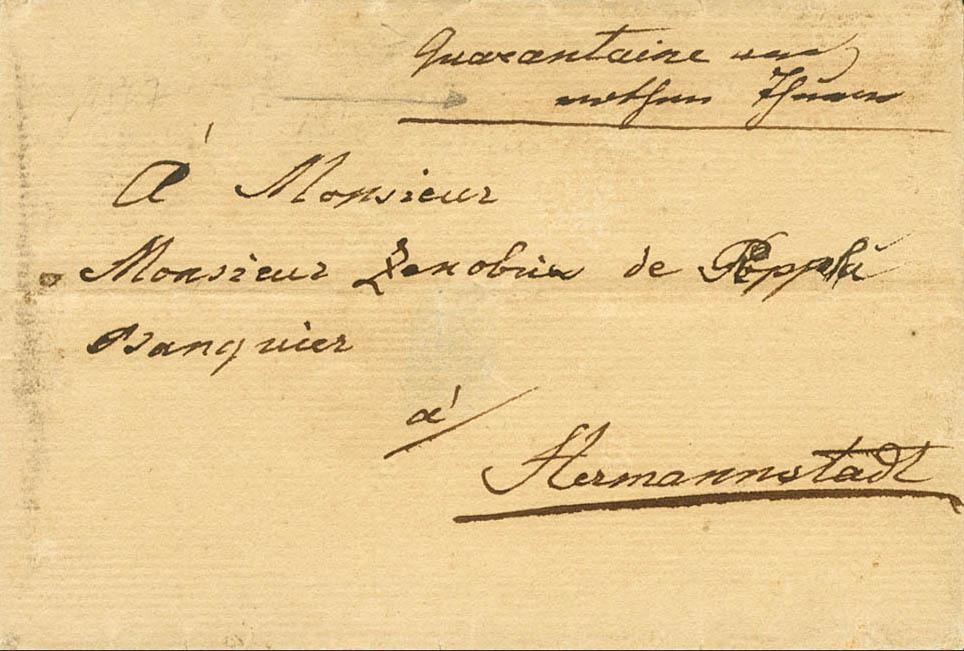 Quarantaine am
rothen Thurm
À Monsieur
Monsieur Zenobius de Popp
Banquier
à
Hermannstadt